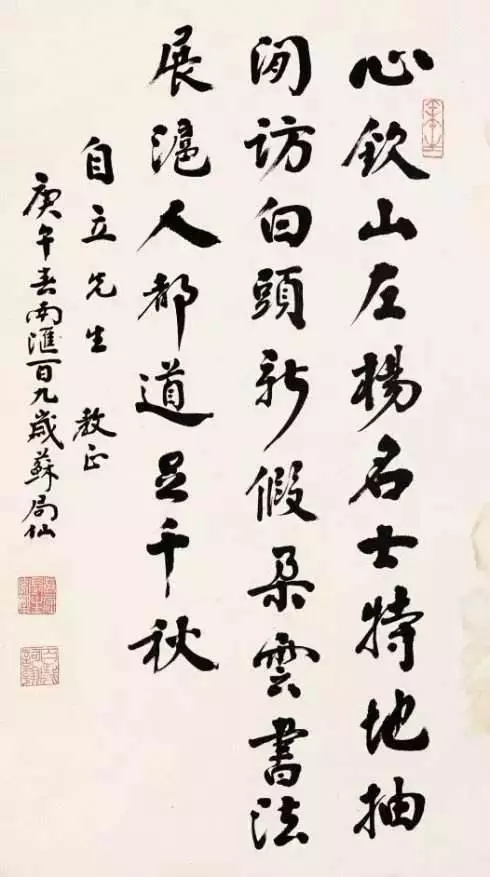 心欽山左楊名士特地抽
閒訪白頭新假朵雲書法
展滬人都道足千秋
自立先生 教正
庚午春南滙百九歲蘇局仙